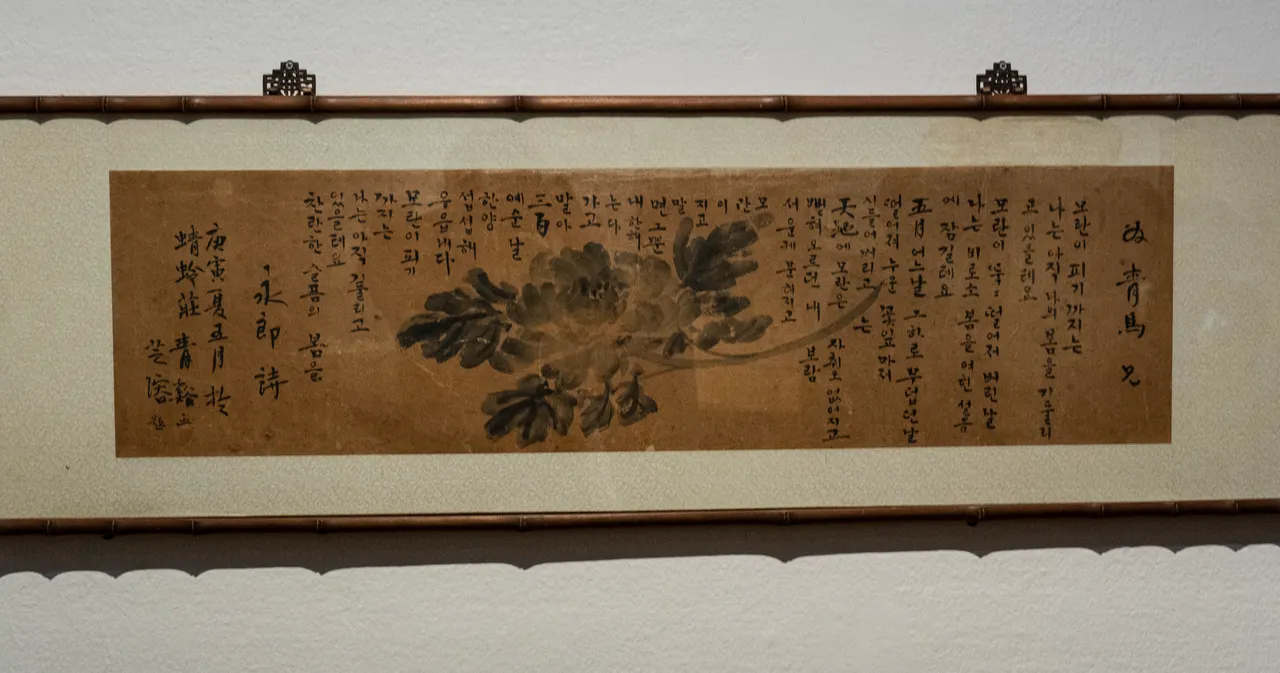 青馬 兄
모란이 피기 까지는
나는 아직 나의 봄을 기둘리
고 있을테요
모란이 뚝〻 떨어져 버린날
나는 비로소 봄을 여흰 설움
에 잠길테요
五月 어느날 그 하로 무덥던날
떨어져 누운 꽃잎마저
시들어버리고는
天地에 모란은 자취도 없어지고
뻗혀오르던 내 보람
서운케 문허졌고
모
란
이
지고
말
면 그뿐
내 한해
는 다
가고
말아
三百
예순 날
한양
섭섭해
우웁내다
모란이 피기
까지는
나는 아직 기둘리고
있을테요
찬란한 슬픔의 봄을
永郎 詩
庚寅 夏 五月 於
蜻蛉莊 青谿
芝溶 題